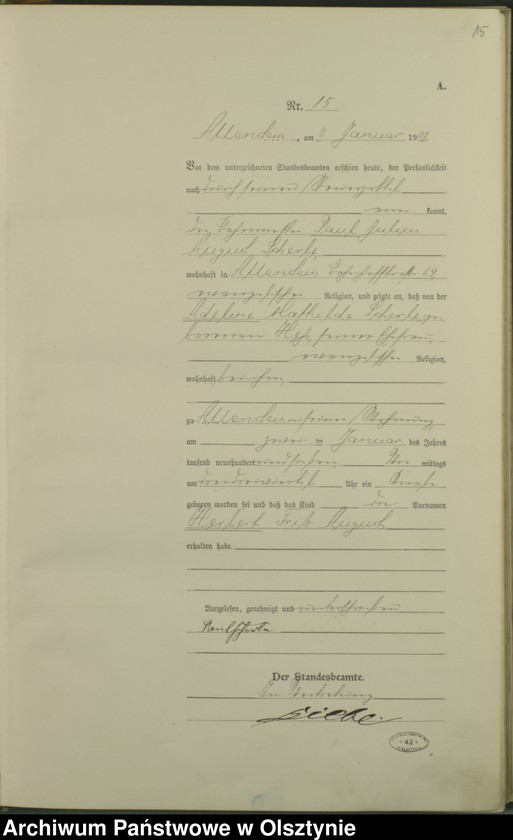 15
A.
Nr. 15
Allenstein, am 3 Januar 19
Vor dem unterzeichneten Standesbeamten erschien heute, der Persönlichkeit
nach durch seinen Steuerzettel
kannt,
der Paul Julius
August Scherle,
wohnhaft in Allenstein Bahnhofstraße 69
evangelischer Religion, und zeigte an, daß von der
Adeline Mathilde Scherle ge-
borenen seiner Ehefrau,
evangelischer Religion,
wohnhaft bei ihm,
zu Allenstein in seiner Wohnung
am zwei ten Januar des Jahres
tausend neunhundert Vor mittags
um Uhr ein Knabe
geboren worden sei und daß das Kind die Vornamen
Herbert Fritz August
erhalten habe.
Vorgelesen, genehmigt und unterschrieben
Paul Scherle
Der Standesbeamte.
In Vertretung
42
Archiwum Państwowe w Olsztynie